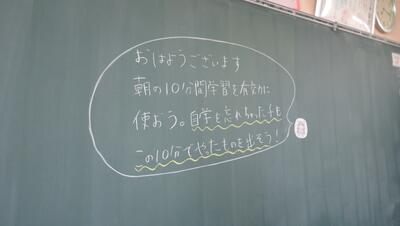 おはようございます
朝の10分間学習を有効に
使おう。自学を忘れちゃった子も
この10分でやったものを出そう！